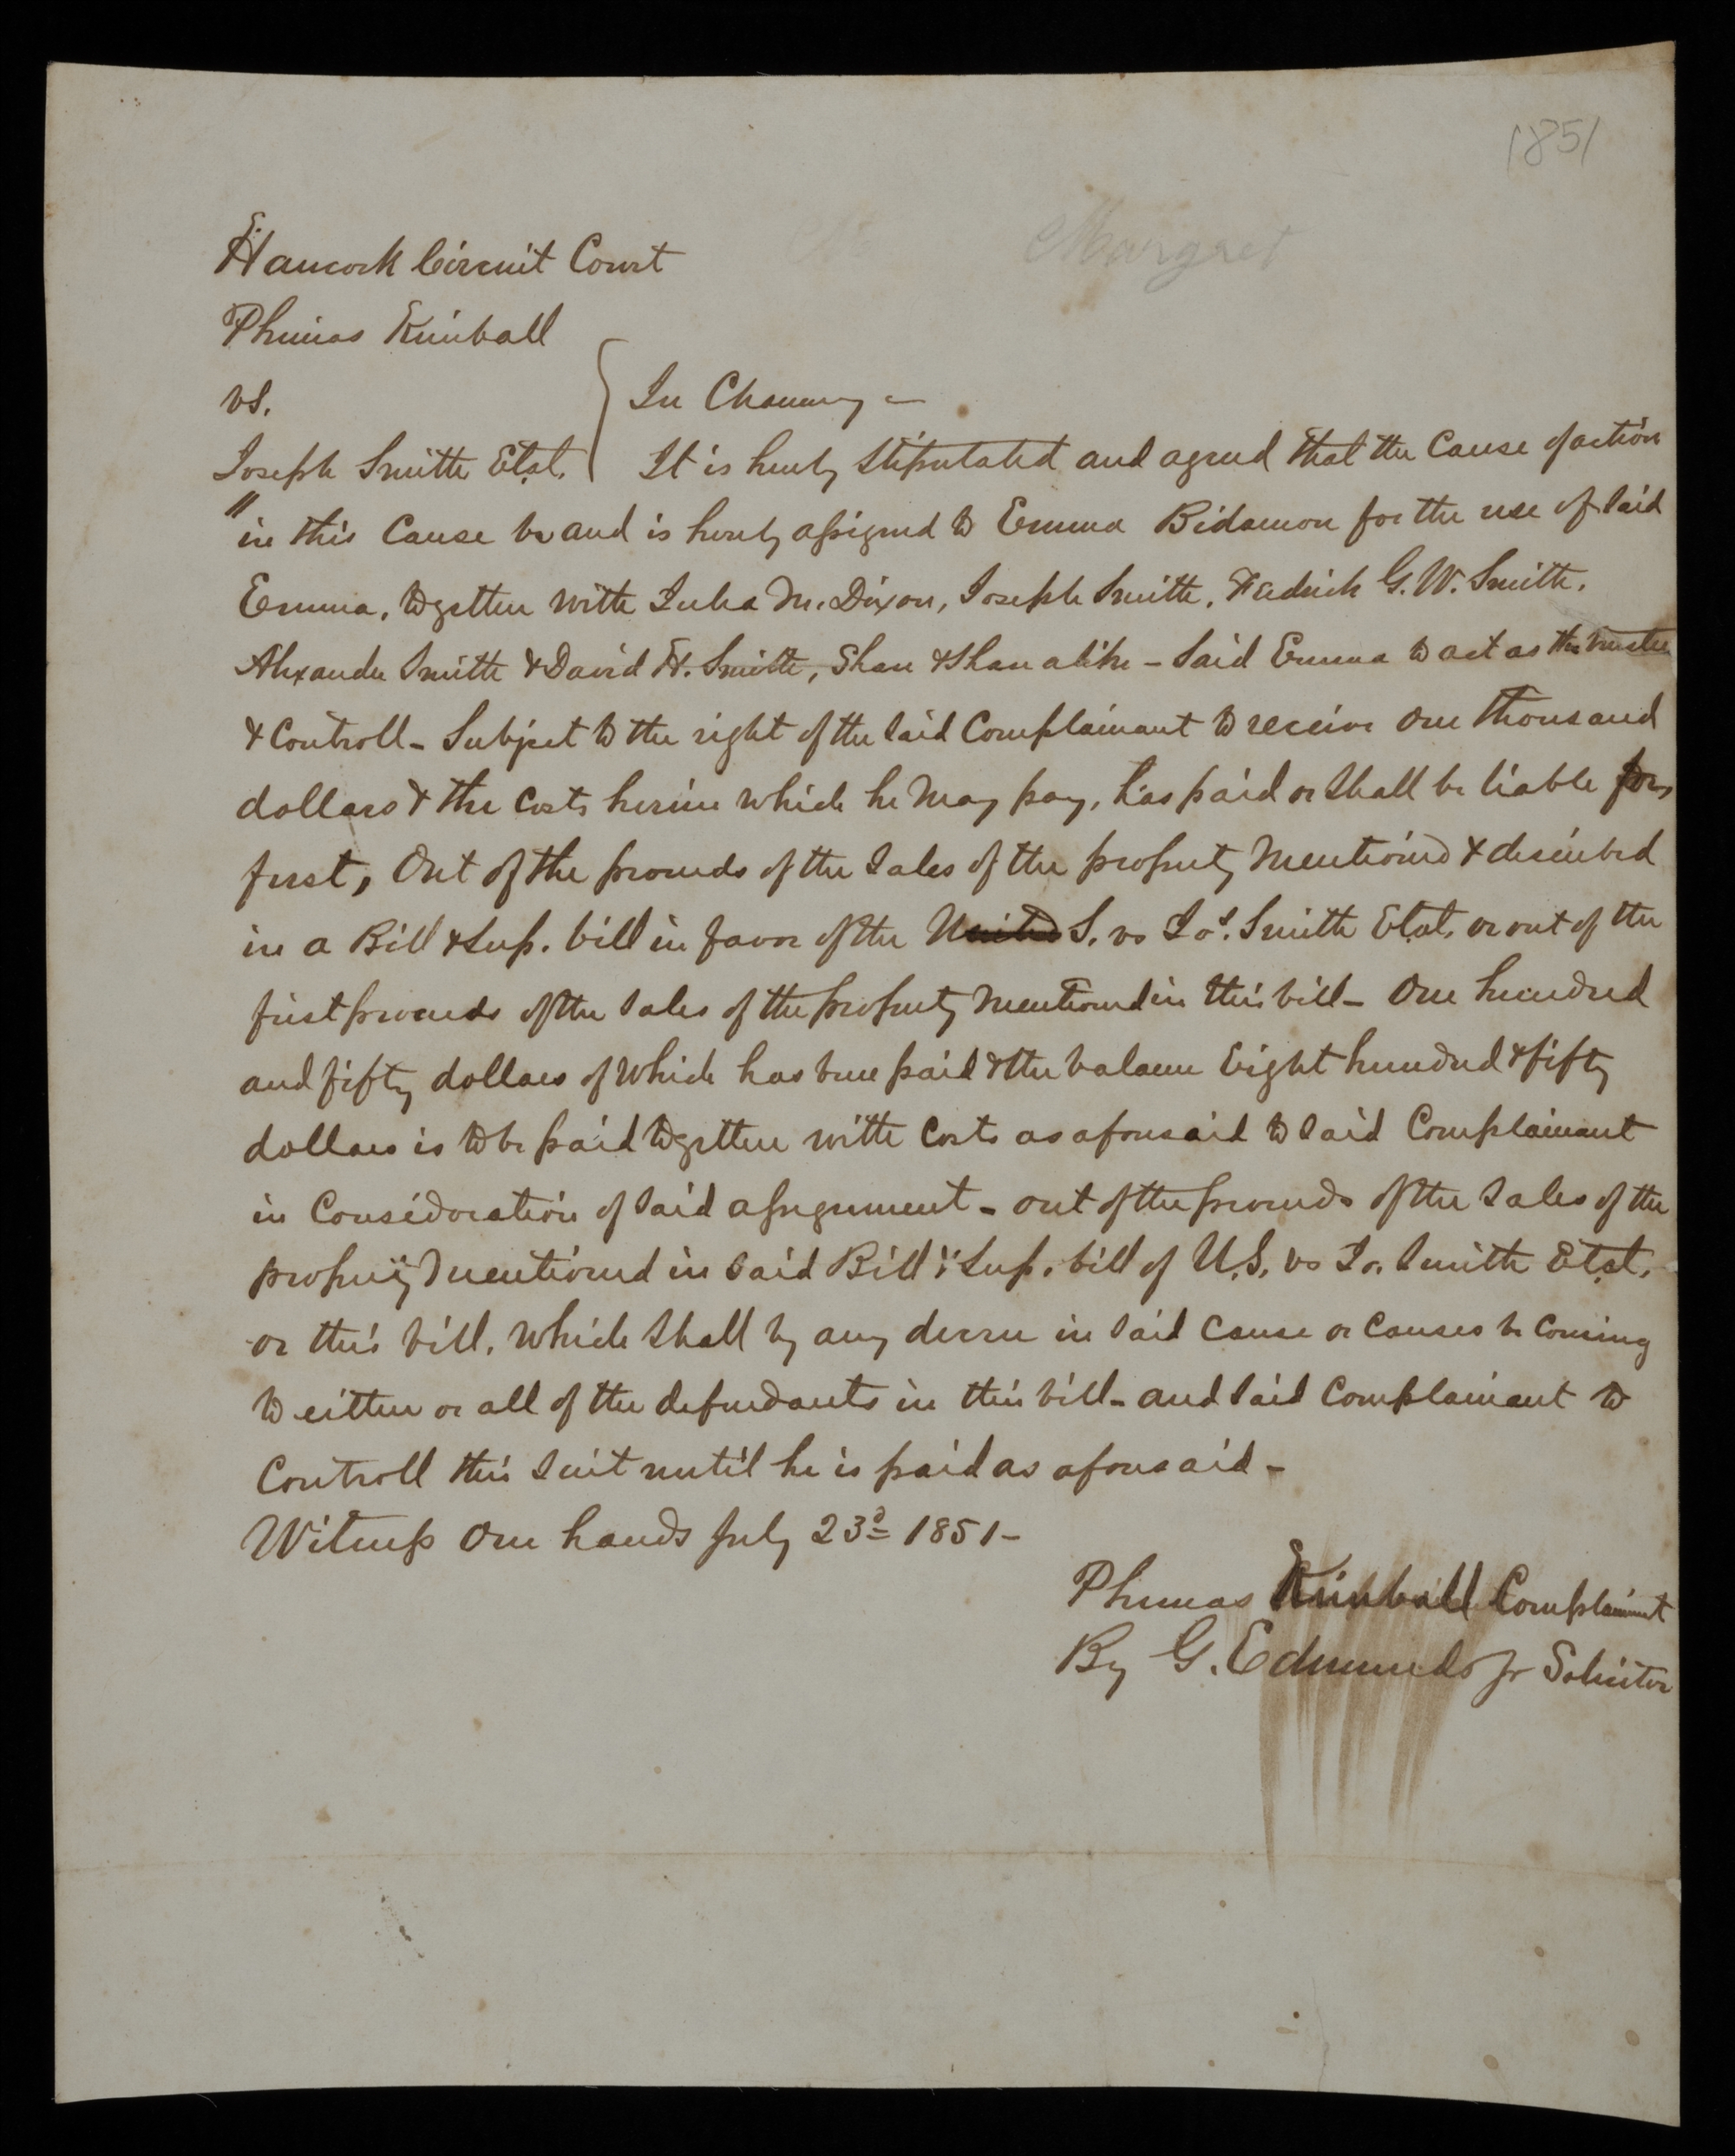 1851
Margret
Hancock Circuit Court
Phineas Kimball
vs.
In Chancery –
Joseph Smith Et.al. It is hereby Stipulated and agreed that the Cause of action
" in this Cause be and is hereby assigned to Emma Bidamon for the use of said
Emma, together with Julia M. Dixon, Joseph Smith, Fredrick G. W. Smith,
Alexander Smith & David H. Smith, Share & Share alike – Said Emma to act as their trustee
& Controll – Subject to the right of the said Complainant to receive One thousand
dollars & the Costs herein which he May pay, has paid or Shall be liable for,
first, Out of the proceeds of the Sales of the property Mentioned & described
in a Bill & Sup. bill in favor of the United S. vs Jos. Smith Et.al. or out of the
first proceeds of the Sales of the property Mentioned in this bill – One hundred
and fifty dollars of Which has been paid & the balance Eight hundred & fifty
dollars is to be paid together with Costs as aforesaid to said Complainant
in Consideration of said assignment – out of the proceeds of the Sales of the
property Mentioned in said Bill & Sup. bill of U.S. vs Jo. Smith Et.al.
or this bill, Which Shall by any decree in said Cause or Causes be Coming
to either or all of the defendants in this bill – and said Complainant to
Controll this Suit until he is paid as aforesaid –
Witness Our hands July 23d 1851 –
Phineas Kimball Complainant
By G. Edmunds Jr Solicitor